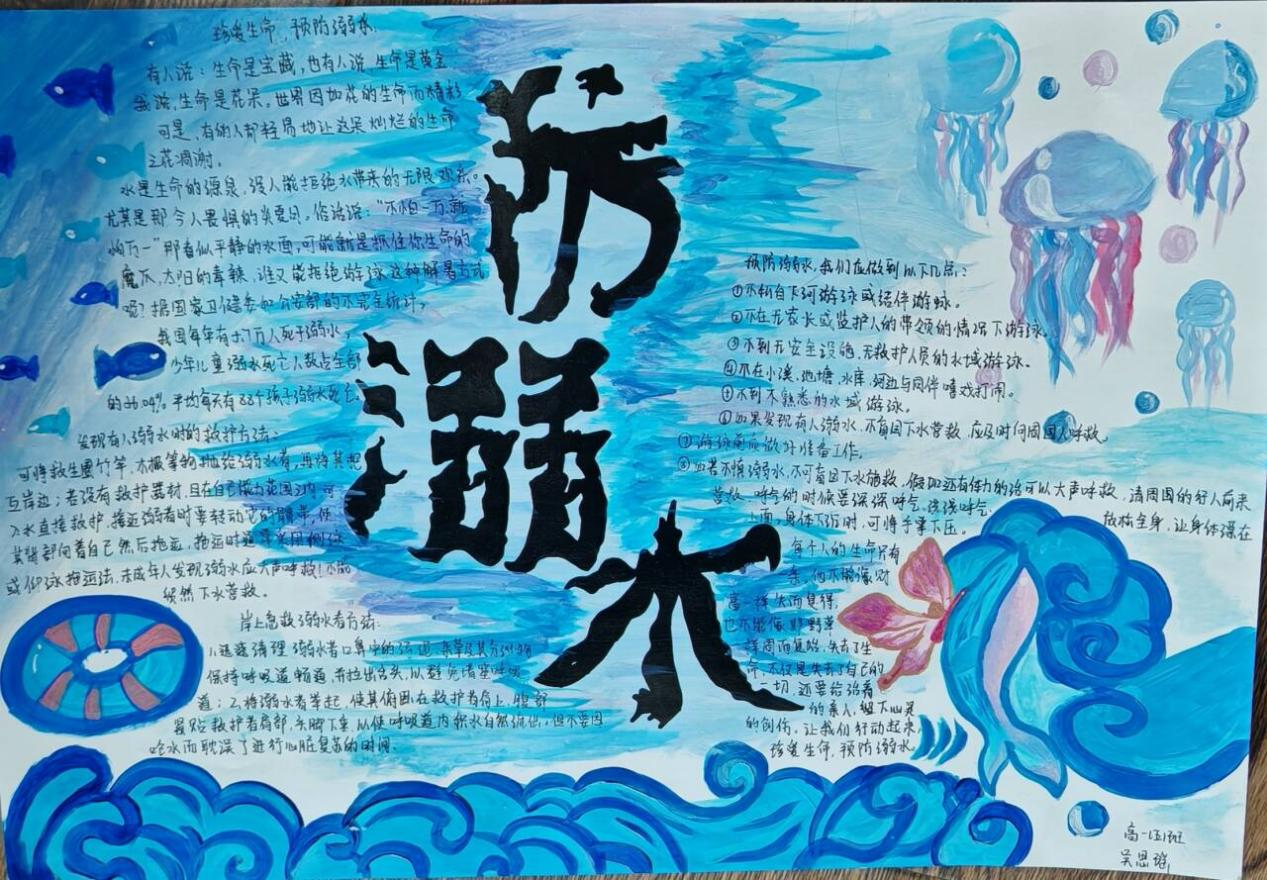 珍爱生命,预防溺水
有人说:生命是宝藏,也有人说,生命是黄金
我说,生命是花朵,世界因如花的生命而精彩
可是,有的人却轻易地让这朵灿烂的生命
之花凋谢。
水是生命的源泉,没人能拒绝水带来的无限欢乐。
尤其是那令人畏惧的炎夏日,俗话说:“不怕一万,就
怕万一”那看似平静的水面,可能就是抓住你生命的
魔爪,太阳的毒辣,谁又能拒绝游泳这种解暑方式
呢?据国家卫健委和公安部的不完全统计,
我国每年有5.7万人死于溺水
少年儿童溺水死亡人数占全部
的56.04%,平均每天有88个孩子溺水死亡。
发现有人溺水时的救护方法:
可将救生圈竹竿,木板等物抛给溺水者,再将其拖
至岸边;若没有救护器材,且在自己能力范围之内可
入水直接救护,接近溺者时要转动它的髋部,使
其背部向着自己然后拖运,拖运时通常采用侧泳
或仰泳拖运法,未成年人发现溺水应大声呼救!不能
贸然下水营救。
岸上急救溺水者方法:
1.迅速清理溺水者口鼻中的污泥,杂草及其分泌物
保持呼吸道畅通,并拉出舌头,以避免堵塞呼吸
道;2.将溺水者举起,使其俯面在救护者肩上,腹部
紧贴救护者肩部,头脚下垂,以使呼吸道内积水自然流出,但不要因
呛水而耽误了进行心脏复苏的时间.
防
溺
水
预防溺水,我们应做到以下几点:
①不私自下河游泳或结伴游泳。
②不在无家长或监护人的带领的情况下游泳.
③不到无安全设施,无救护人员的水域游泳.
④不在小溪,池塘,水库,河边与同伴嬉戏打闹。
⑤不到不熟悉的水域游泳。
⑥如果发现有人溺水,不盲目下水营救,应及时向周围人呼救
⑦游泳前应做好准备工作.
⑧如若不慎溺水,不可盲目下水施救,假如还有体力的话可以大声呼救,请周围的行人前来
营救,呼气的时候要深深呼气,浅浅呼气
放松全身,让身体漂在
上面,身体下沉时,可将手掌下压。
每个人的生命只有
一条,他不能像财
富一样失而复得,
也不能像那野草
样周而复始,失去了生
命,不仅是失去了自己的
一切,还要给活着
的亲人,留下心灵
的创伤,让我们行动起来
珍爱生命,预防溺水
高一(5)班
吴思瑶